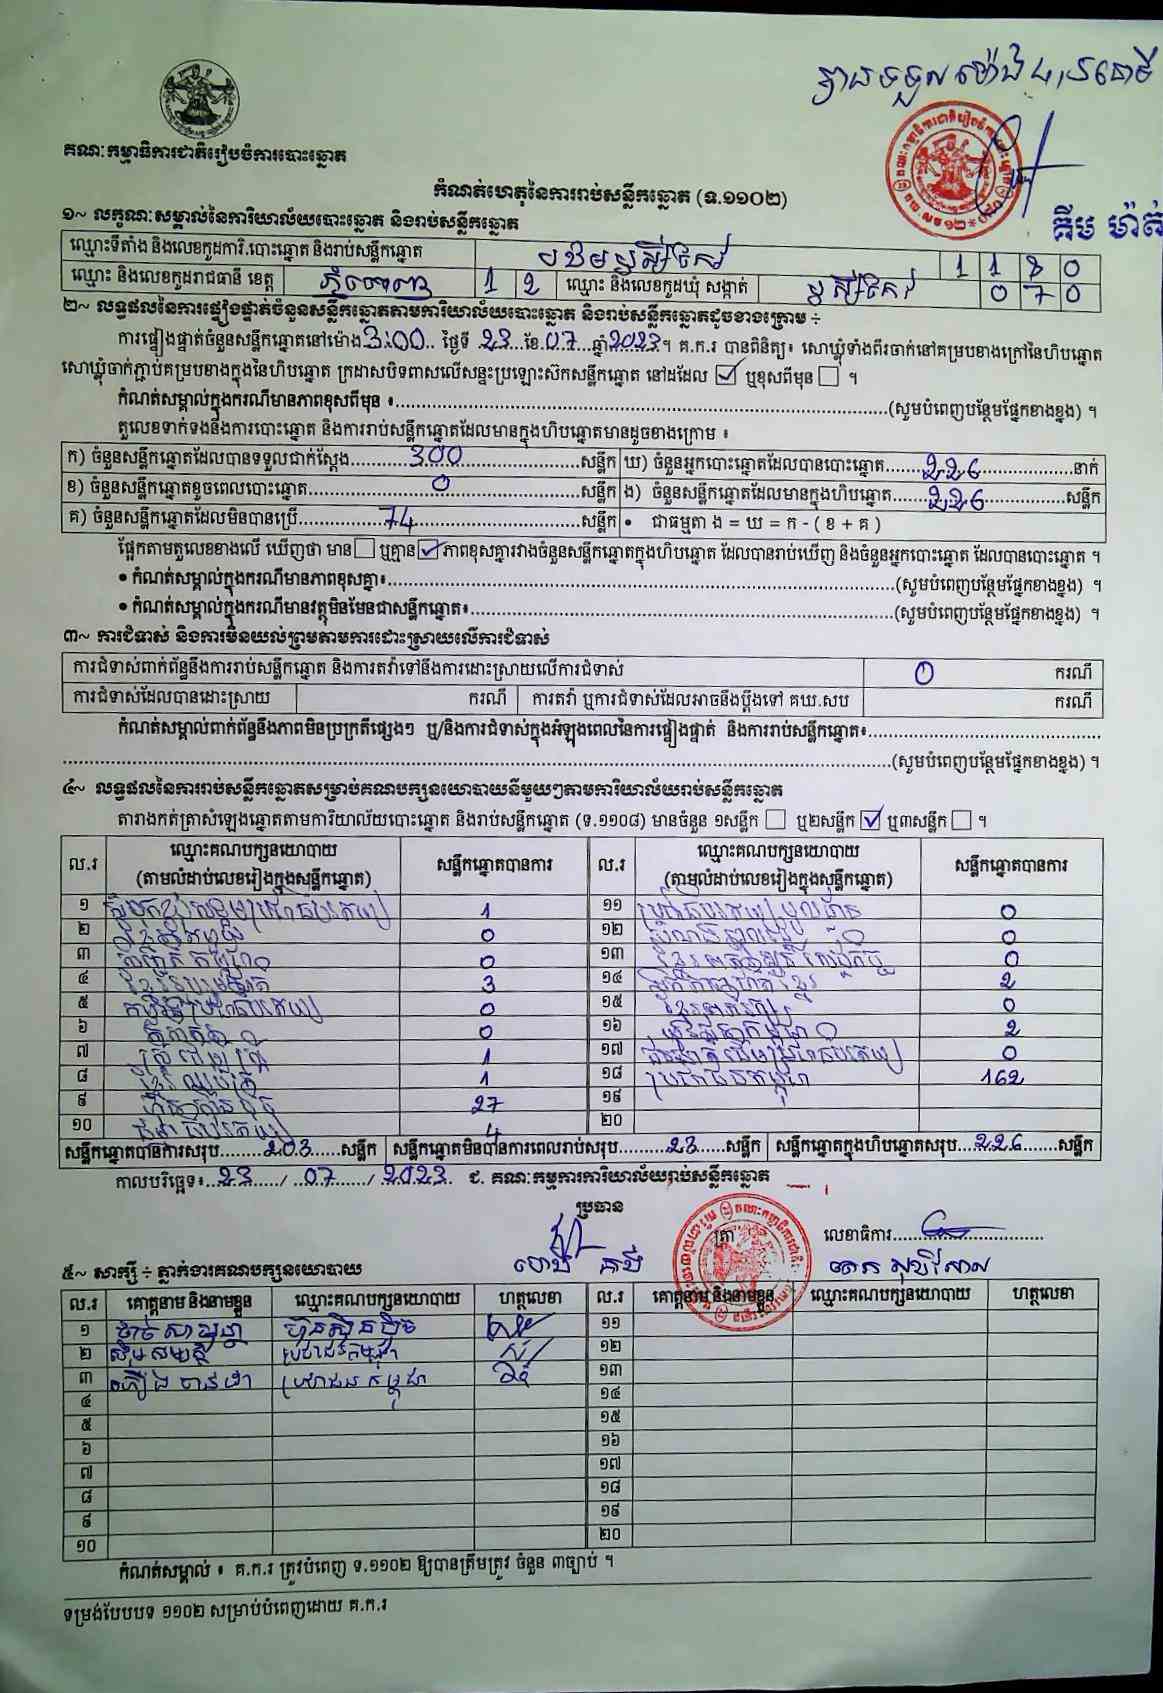 គណៈកម្មាធិការជាតិរៀបចំការបោះឆ្នោត
គឹម ម៉ាត់
កំណត់ហេតុនៃការរាប់សន្លឹកឆ្នោត (ទ.១១០២)
១~ លក្ខណៈសម្គាល់នៃការិយាល័យបោះឆ្នោត និងរាប់សន្លឹកឆ្នោត
ឈ្មោះទីតាំង និងលេខកូដការិ.បោះឆ្នោត និងរាប់សន្លឹកឆ្នោត បឋមឫស្សីកែវ 1 1 8 0
ឈ្មោះ និងលេខកូដរាជធានី ខេត្ត ភ្នំពេញ 1 2 ឈ្មោះ និងលេខកូដឃុំ សង្កាត់ ឫស្សីកែវ 0 7 0
២~ លទ្ធផលនៃការផ្ទៀងផ្ទាត់ចំនួនសន្លឹកឆ្នោតតាមការិយាល័យបោះឆ្នោត និងរាប់សន្លឹកឆ្នោតដូចខាងក្រោម ÷
ការផ្ទៀងផ្ទាត់ចំនួនសន្លឹកឆ្នោតនៅម៉ោង 3:00 ថ្ងៃទី 23 ខែ 07 ឆ្នាំ 2023 ។ គ.ក.រ បានពិនិត្យ៖ សោឃ្លុំទាំងពីរចាក់នៅគម្របខាងក្រៅនៃហិបឆ្នោត
សោឃ្លុំចាក់ភ្ជាប់គម្របខាងក្នុងនៃហិបឆ្នោត ក្រដាសបិទពាសលើសន្ទះប្រឡោះស៊កសន្លឹកឆ្នោត នៅដដែល ☑ ឬខុសពីមុន ☐ ។
កំណត់សម្គាល់ក្នុងករណីមានភាពខុសពីមុន ៖..........(សូមបំពេញបន្ថែមផ្នែកខាងខ្នង) ។
តួលេខទាក់ទងនឹងការបោះឆ្នោត និងការរាប់សន្លឹកឆ្នោតដែលមានក្នុងហិបឆ្នោតមានដូចខាងក្រោម ៖
ក) ចំនួនសន្លឹកឆ្នោតដែលបានទទួលជាក់ស្តែង 300 សន្លឹក ឃ) ចំនួនអ្នកបោះឆ្នោតដែលបានបោះឆ្នោត 226 នាក់
ខ) ចំនួនសន្លឹកឆ្នោតខូចពេលបោះឆ្នោត 0 សន្លឹក ង) ចំនួនសន្លឹកឆ្នោតដែលមានក្នុងហិបឆ្នោត 226 សន្លឹក
គ) ចំនួនសន្លឹកឆ្នោតដែលមិនបានប្រើ 74 សន្លឹក • ជាធម្មតា ង = ឃ = ក - ( ខ + គ )
ផ្អែកតាមតួលេខខាងលើ ឃើញថា មាន ☐ ឬគ្មាន ☑ ភាពខុសគ្នារវាងចំនួនសន្លឹកឆ្នោតក្នុងហិបឆ្នោត ដែលបានរាប់ឃើញ និងចំនួនអ្នកបោះឆ្នោត ដែលបានបោះឆ្នោត ។
• កំណត់សម្គាល់ក្នុងករណីមានភាពខុសគ្នា៖..........(សូមបំពេញបន្ថែមផ្នែកខាងខ្នង) ។
• កំណត់សម្គាល់ក្នុងករណីមានវត្ថុមិនមែនជាសន្លឹកឆ្នោត៖..........(សូមបំពេញបន្ថែមផ្នែកខាងខ្នង) ។
៣~ ការជំទាស់ និងការមិនយល់ព្រមតាមការដោះស្រាយលើការជំទាស់
ការជំទាស់ពាក់ព័ន្ធនឹងការរាប់សន្លឹកឆ្នោត និងការតវ៉ាទៅនឹងការដោះស្រាយលើការជំទាស់ 0 ករណី
ការជំទាស់ដែលបានដោះស្រាយ ករណី ការតវ៉ា ឬការជំទាស់ដែលអាចនឹងប្តឹងទៅ គឃ.សប ករណី
កំណត់សម្គាល់ពាក់ព័ន្ធនឹងភាពមិនប្រក្រតីផ្សេងៗ ឬ/និងការជំទាស់ក្នុងអំឡុងពេលនៃការផ្ទៀងផ្ទាត់ និងការរាប់សន្លឹកឆ្នោត៖..........
..........(សូមបំពេញបន្ថែមផ្នែកខាងខ្នង) ។
៤~ លទ្ធផលនៃការរាប់សន្លឹកឆ្នោតសម្រាប់គណបក្សនយោបាយនីមួយៗតាមការិយាល័យរាប់សន្លឹកឆ្នោត
តារាងកត់ត្រាសំឡេងឆ្នោតតាមការិយាល័យបោះឆ្នោត និងរាប់សន្លឹកឆ្នោត (ទ.១១០៨) មានចំនួន ១សន្លឹក ☐ ឬ២សន្លឹក ☑ ឬ៣សន្លឹក ☐ ។
ល.រ ឈ្មោះគណបក្សនយោបាយ (តាមលំដាប់លេខរៀងក្នុងសន្លឹកឆ្នោត) សន្លឹកឆ្នោតបានការ ល.រ ឈ្មោះគណបក្សនយោបាយ (តាមលំដាប់លេខរៀងក្នុងសន្លឹកឆ្នោត) សន្លឹកឆ្នោតបានការ
១ 1 ១១ 0
២ 0 ១២ 0
៣ 0 ១៣ 0
៤ 3 ១៤ 2
៥ 0 ១៥ 0
៦ 0 ១៦ 2
៧ 1 ១៧ 0
៨ 1 ១៨ ប្រជាជនកម្ពុជា 162
៩ ហ្វ៊ុនស៊ិនប៉ិច 27 ១៩
១០ 4 ២០
សន្លឹកឆ្នោតបានការសរុប 203 សន្លឹក សន្លឹកឆ្នោតមិនបានការពេលរាប់សរុប 23 សន្លឹក សន្លឹកឆ្នោតក្នុងហិបឆ្នោតសរុប 226 សន្លឹក
កាលបរិច្ឆេទ៖ 23 / 07 / 2023 ជ. គណៈកម្មការការិយាល័យរាប់សន្លឹកឆ្នោត
ប្រធាន
ត្រា លេខាធិការ
៥~ សាក្សី ÷ ភ្នាក់ងារគណបក្សនយោបាយ
ល.រ គោត្តនាម និងនាមខ្លួន ឈ្មោះគណបក្សនយោបាយ ហត្ថលេខា ល.រ គោត្តនាម និងនាមខ្លួន ឈ្មោះគណបក្សនយោបាយ ហត្ថលេខា
១ ហ្វ៊ុនស៊ិនប៉ិច ១១
២ ប្រជាជនកម្ពុជា ១២
៣ ប្រជាជនកម្ពុជា ១៣
៤ ១៤
៥ ១៥
៦ ១៦
៧ ១៧
៨ ១៨
៩ ១៩
១០ ២០
កំណត់សម្គាល់ ៖ គ.ក.រ ត្រូវបំពេញ ទ.១១០២ ឱ្យបានត្រឹមត្រូវ ចំនួន ៣ច្បាប់ ។
ទម្រង់បែបបទ ១១០២ សម្រាប់បំពេញដោយ គ.ក.រ